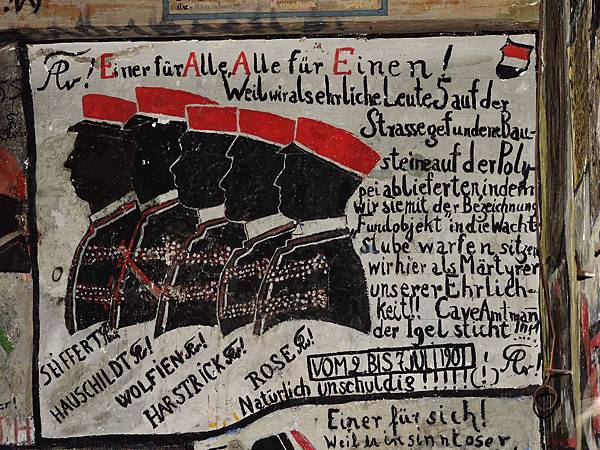 Einer für Alle, Alle für Einen!
Weil wir als ehrliche Leute 5 auf der
Strasse gefundene Bau-
steine auf der Poly-
pei ablieferten indem
wir sie mit der Bezeichnung
„Fundobjekt" in die Wacht-
stube warfen sitzen
wir hier als Märtyrer
unserer Ehrlich-
keit!! Cave Amtmann
der Igel sticht
SEIFFERT
HAUSCHILDT
WOLFIEN
HARSTRICK
ROSE
VOM 2. BIS 7. JULI 1901
Natürlich unschuldig !!!!!! (!)
Einer für sich!
Weil in sinnloser